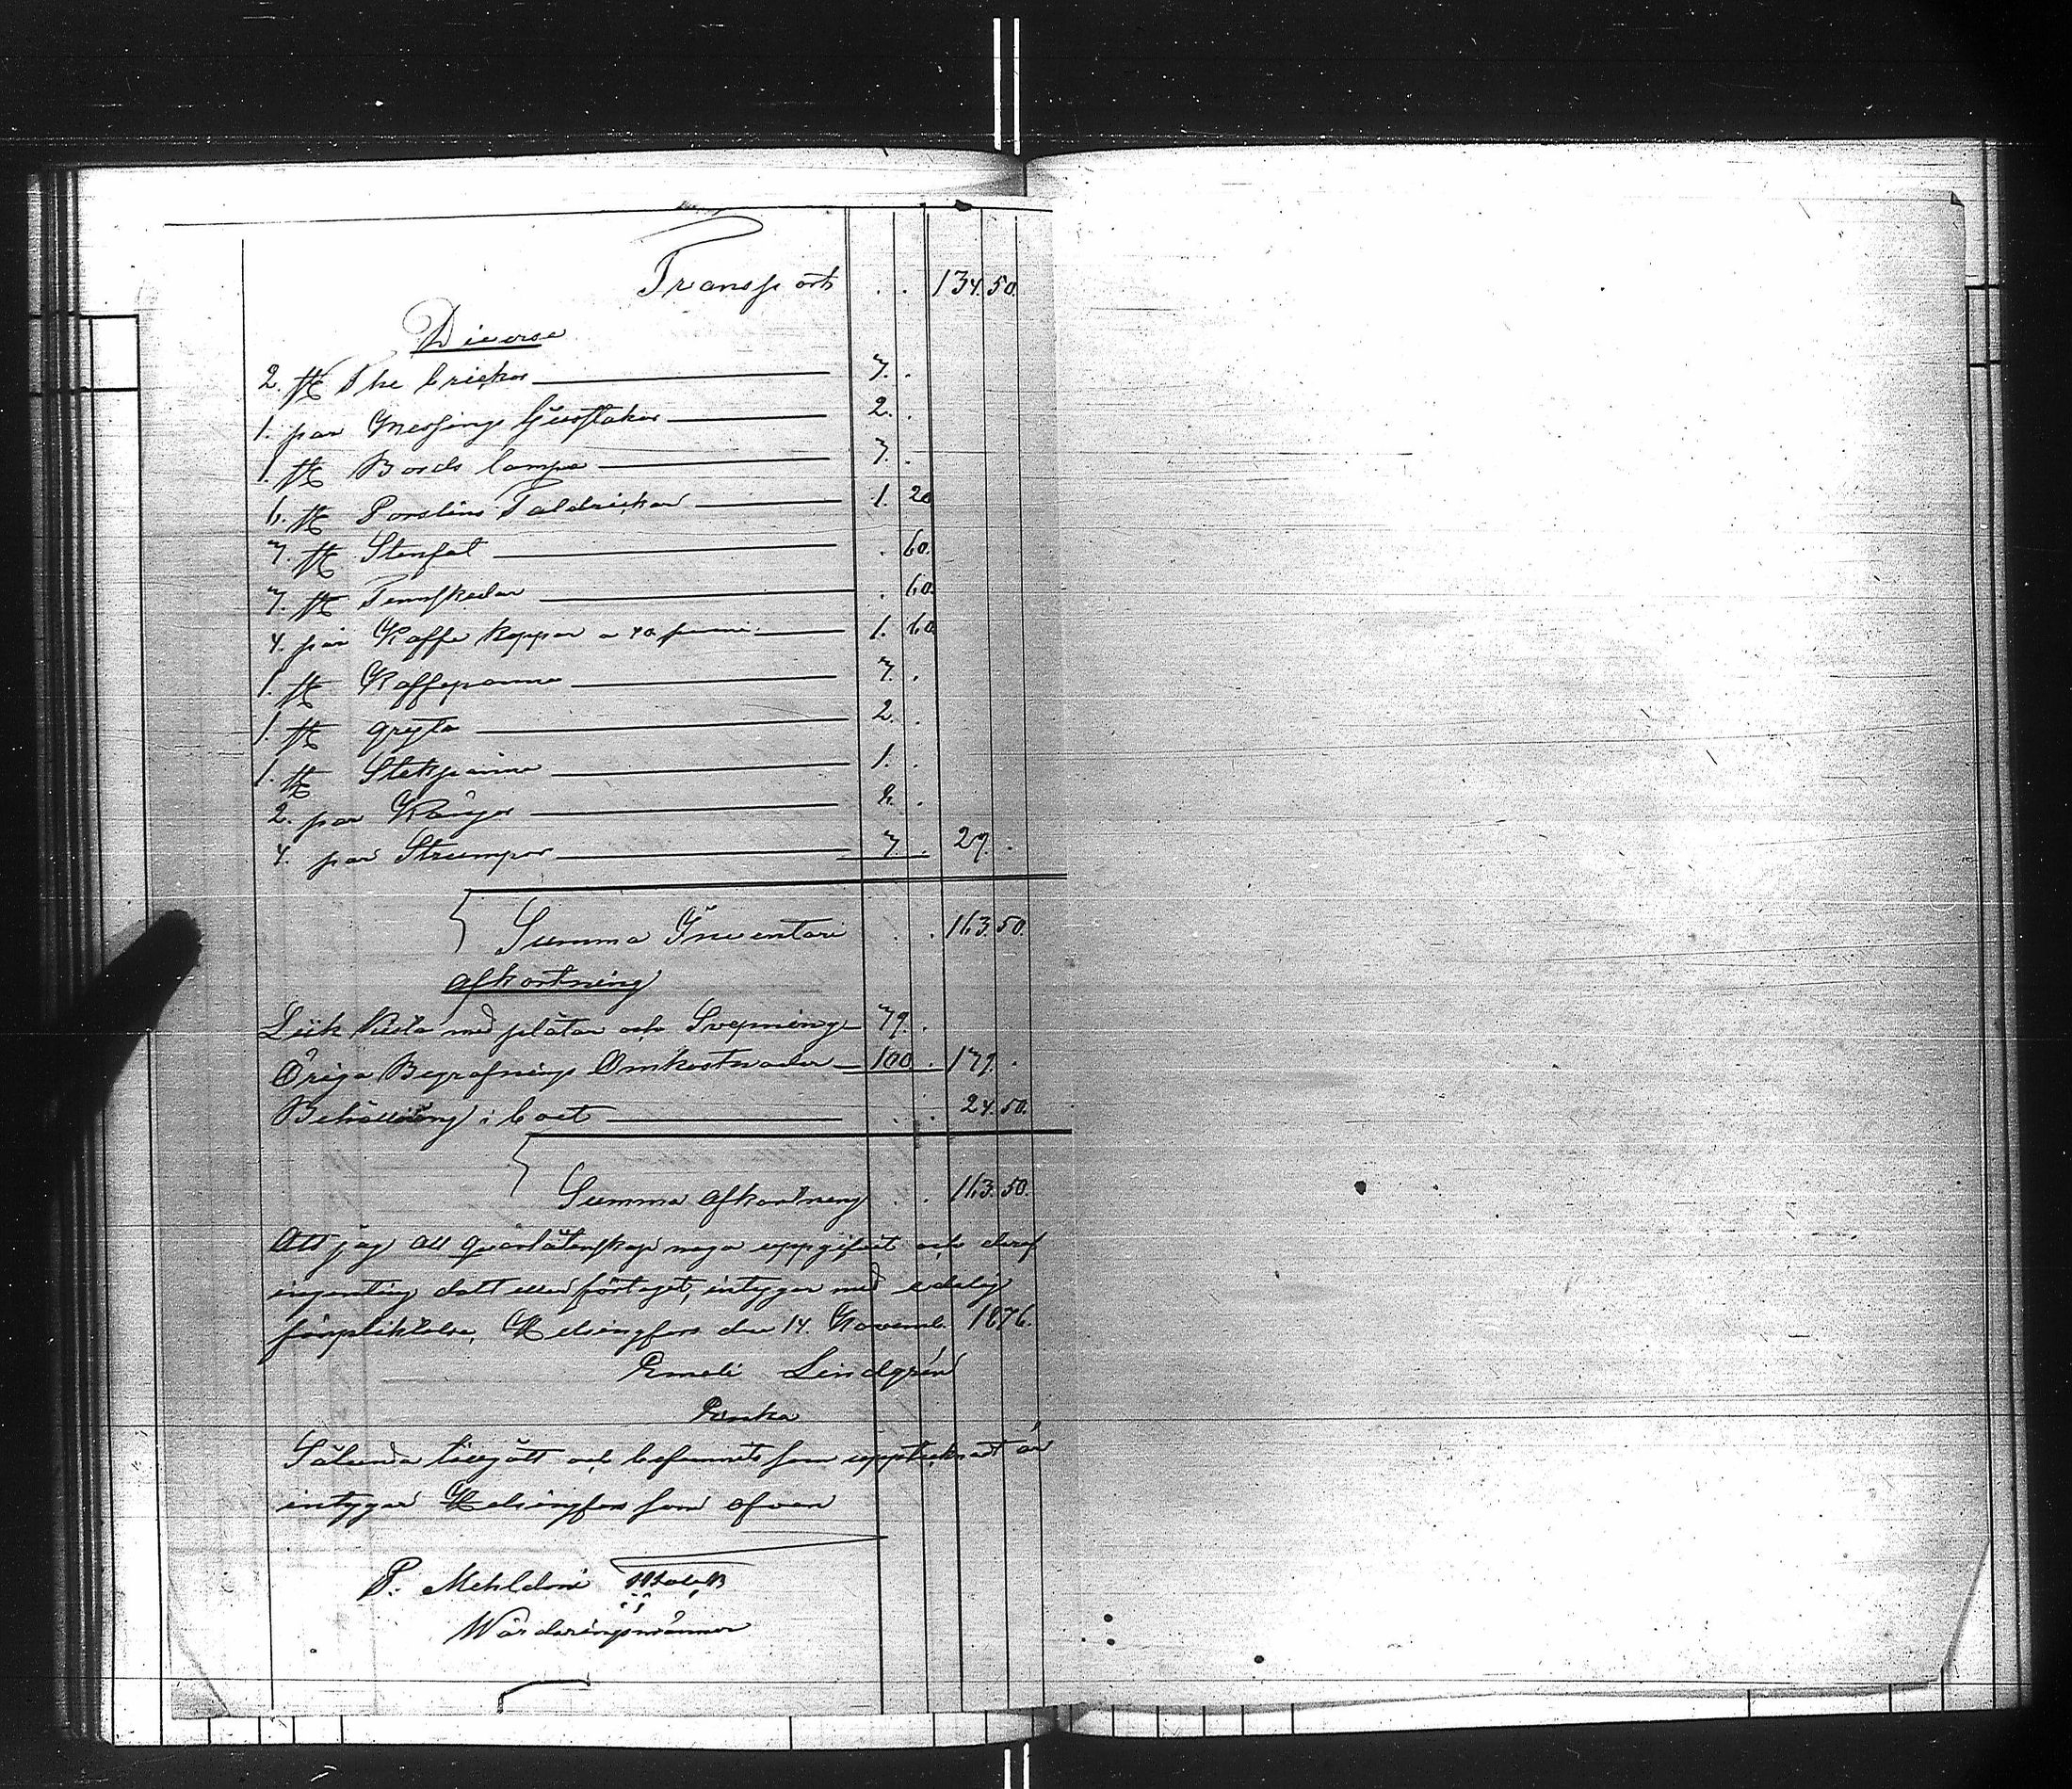 Transport . . 134. 50.
Diverse
2. st The brickor 3. .
1. par Messings ljusstakar 2. .
1. st Bords lampa 3. .
6. st Porslins Taldrickar 1. 20
3. st Stenfat . 60.
3. st Tennskedar . 60.
4. par Kaffe koppar a 40 penni 1. 60
1. st Kaffepanna 3. .
1. st gryta 2. .
1. st Stekpanna 1. .
2. par Kängor 8. .
4. par Strumpor 3. . 29. .
Summa Inventari . . 163. 50.
Afkortning
Liik Kista med plåtar och Svepning 39. .
Öriga Begrafnings Omkostnader 100 . 139. .
Behållning i boet . . 24. 50.
Summa Afkortning . . 163. 50.
Att jag all qvarlåtenskap noga uppgifvit och deraf
ingenting dolt eller förtegat, intygar med edelig
förpliktelse, Helsingfors den 14. Novemb. 1876.
Emeli Lindgrén
Enka
Sålunda tillgått och befunnits som upptecknadt är
intygar Helsingfors som ofvan
P. Mehldon
Wärderingsmänner